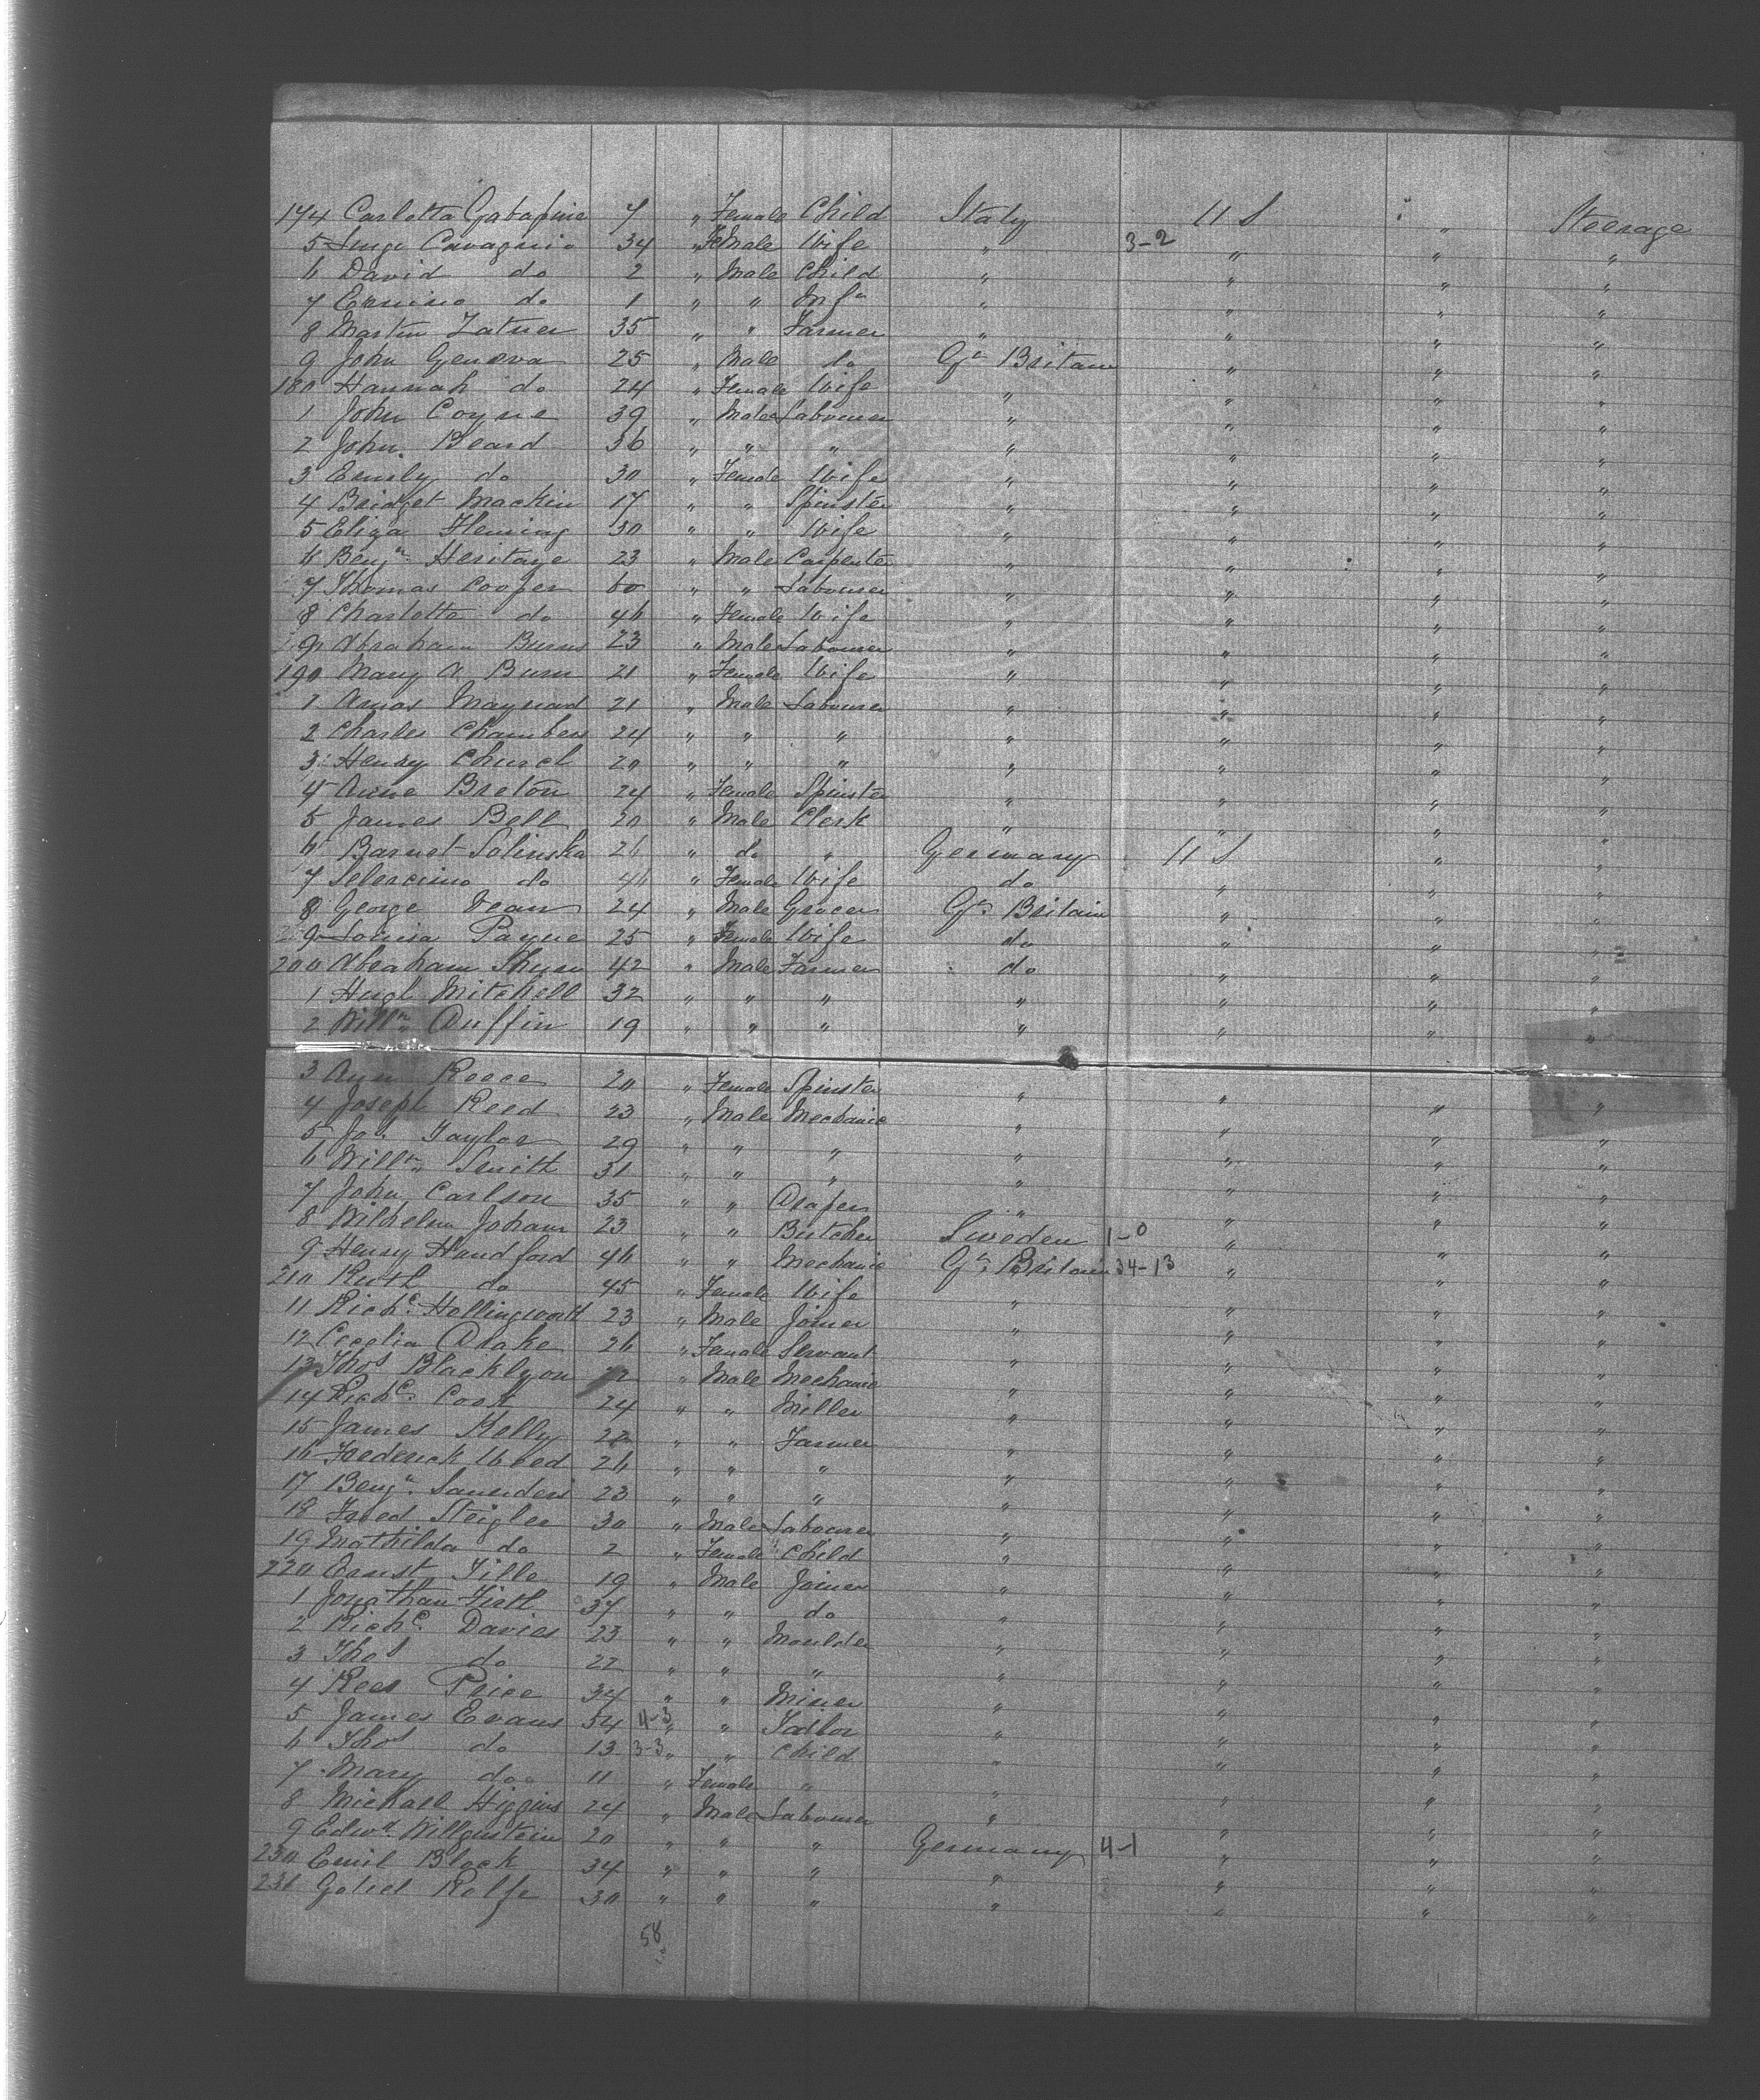 174 Carlotta Gabapine 7 " Female Child Italy U S " " Steerage
5 Luigi Cavagnio 34 " Female Wife " 3-2 " " "
6 David do 2 " Male Child " " " "
7 do 1 " " Inft " " " "
8 Martin Zatner 35 " " Farmer " " " "
9 John Genova 25 " Male do Gt Britain " " "
180 Hannah do 24 " Female Wife " " " "
1 John Coyne 39 " Male Labourer " " " "
2 John Beard 36 " " " " " " "
3 Emily do 30 " Female Wife " " " "
4 Bridget Mackin 17 " " Spinster " " " "
5 Eliza Fleming 30 " " Wife " " " "
6 Benjn Heritage 23 " Male Carpenter " " " "
7 Thomas Cooper 60 " " Labourer " " " "
8 Charlotte do 46 " Female Wife " " " "
9 Abraham Burns 23 " Male Labourer " " " "
190 Mary A Burn 21 " Female Wife " " " "
1 Amos Maynard 21 " Male Labourer " " " "
2 Charles Chambers 24 " " " " " " "
3 Henry Church 20 " " " " " " "
4 Anne Breton 24 " Female Spinster " " " "
5 James Bell 20 " Male Clerk " " " "
6 Barnet Solinska 26 " do " Germany U S " "
7 do 46 " Female Wife do " " "
8 George Dean 24 " Male Grocer Gt Britain " " "
9 Louisa Payne 25 " Female Wife do " " "
200 Abraham 42 " Male Farmer do " " "
1 Hugh Mitchell 32 " " " " " " "
2 Willm Duffin 19 " " " " " " "
3 Ann Reece 20 " Female Spinster " " " "
4 Joseph Reed 23 " Male Mechanic " " " "
5 Jos. Taylor 29 " " " " " " "
6 Willm Smith 31 " " " " " " "
7 John Carlson 35 " " Draper " " " "
8 Wilhelm Johann 23 " " Butcher Sweden 1-0 " " "
9 Henry Handford 46 " " Mechanic Gt Britain 34-13 " " "
210 Ruth do 45 " Female Wife " " " "
11 Richd Hollingworth 23 " Male Joiner " " " "
12 Cecelia Drake 26 " Female Servant " " " "
13 Thos Blacklyon " Male Mechanic " " " "
14 Richd Cook 24 " " Miller " " " "
15 James Kelly 22 " " Farmer " " " "
16 Frederick Wood 26 " " " " " " "
17 Benjn Saunders 23 " " " " " " "
18 Fried Steigler 30 " Male Labourer " " " "
19 Mathilda do 2 " Female Child " " " "
220 Ernst Tille 19 " Male Joiner " " " "
1 Jonathan Firth 37 " " do " " " "
2 Richd Davies 23 " " Moulder " " " "
3 Thos do 22 " " " " " " "
4 Rees Price 34 " " Miner " " " "
5 James Evans 54 4-3 " " Tailor " " " "
6 Thos do 13 3-3 " " Child " " " "
7 Mary do 11 " Female " " " " "
8 Michael Higgins 24 " Male Labourer " " " "
9 Edwd Willgenstein 20 " " " Germany 4-1 " " "
230 Emil Block 34 " " " " " " "
231 Rolfe 30 " " " " " " "
58